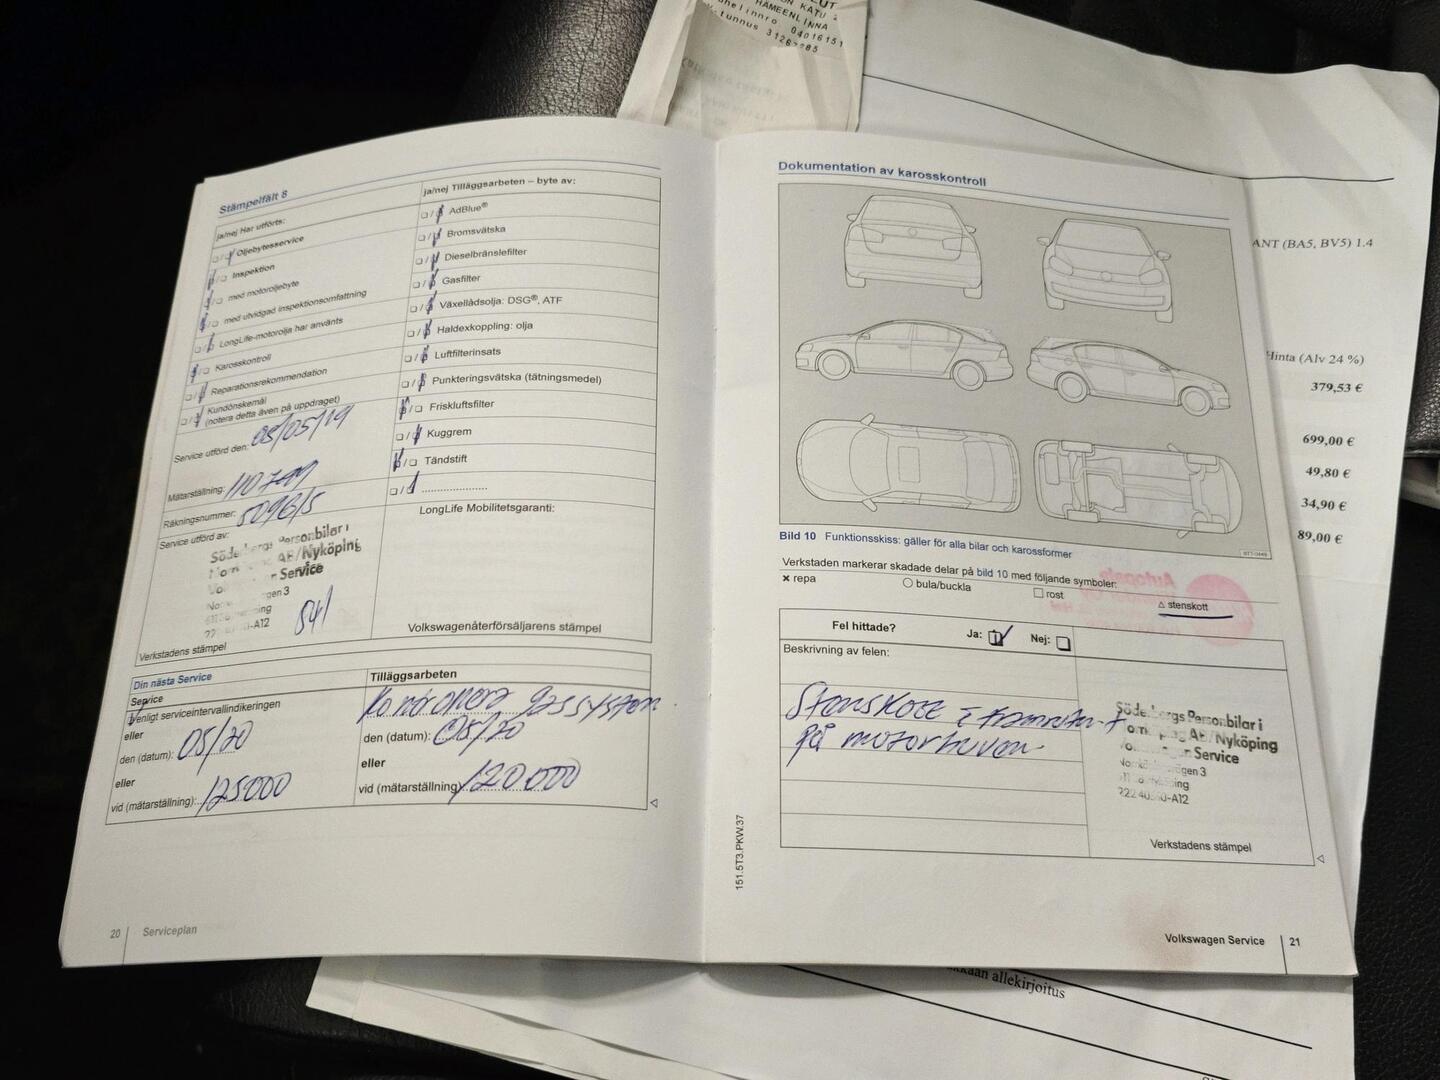 KATU 2
HÄMEENLINNA
04016151
Stämpelfält 8
ja/nej Har utförts:
❏/❏ Oljebytesservice
❏/❏ Inspektion
❏/❏ med motoroljebyte
❏/❏ med utvidgad inspektionsomfattning
❏/❏ LongLife-motorolja har använts
❏/❏ Karosskontroll
❏/❏ Reparationsrekommendation
❏/❏ Kundönskemål
(notera detta även på uppdraget)
Service utförd den: 08/05/19
Mätarställning: 110799
Räkningsnummer: 5096/5
Service utförd av:
Söderbergs Personbilar i
AB/Nyköping
Service
gen 3
ping
-A12
541
Verkstadens stämpel
ja/nej Tilläggsarbeten – byte av:
❏/❏ AdBlue®
❏/❏ Bromsvätska
❏/❏ Dieselbränslefilter
❏/❏ Gasfilter
❏/❏ Växellådsolja: DSG®, ATF
❏/❏ Haldexkoppling: olja
❏/❏ Luftfilterinsats
❏/❏ Punkteringsvätska (tätningsmedel)
❏/❏ Friskluftsfilter
❏/❏ Kuggrem
❏/❏ Tändstift
❏/❏ .....................
LongLife Mobilitetsgaranti:
Volkswagenåterförsäljarens stämpel
Din nästa Service
Service
Venligt serviceintervallindikeringen
eller
den (datum): 05/20
eller
vid (mätarställning): 125000
Tilläggsarbeten
Kontrollera gassystem
den (datum): 05/20
eller
vid (mätarställning) 120000
20 Serviceplan
Dokumentation av karosskontroll
BTT-0449
Bild 10 Funktionsskiss: gäller för alla bilar och karossformer
Verkstaden markerar skadade delar på bild 10 med följande symboler:
× repa ○ bula/buckla □ rost △ stenskott
Fel hittade? Ja: ❏ Nej: ❏
Beskrivning av felen:
Stenskott i framkant
på motorhuven
Söderbergs Personbilar i
AB/Nyköping
Service
gen 3
ping
-A12
Verkstadens stämpel
151.5T3.PKW.37
Volkswagen Service 21
ANT (BA5, BV5) 1.4
Hinta (Alv 24 %)
379,53 €
699,00 €
49,80 €
34,90 €
89,00 €
allekirjoitus